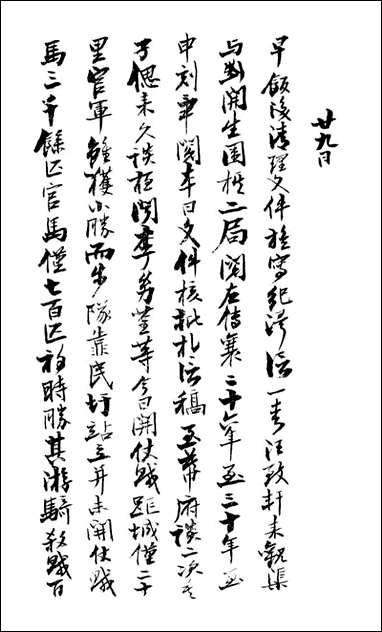 廿九日
早飯後清理文件旋寫紀澤信一壽汪致軒來觀渠
与劉開生圍棋二局閱左傳襄二十六年至三十年至
申刻畢閱本日文件核批札信稿至幕府談二次
子偲來久談極閱李幼荃等今日開仗賊距城僅二十
里官軍雖獲小勝而步隊靠民圩站立并未開仗賊
馬二千餘匹官馬僅七百匹初時勝其游騎殺賊百